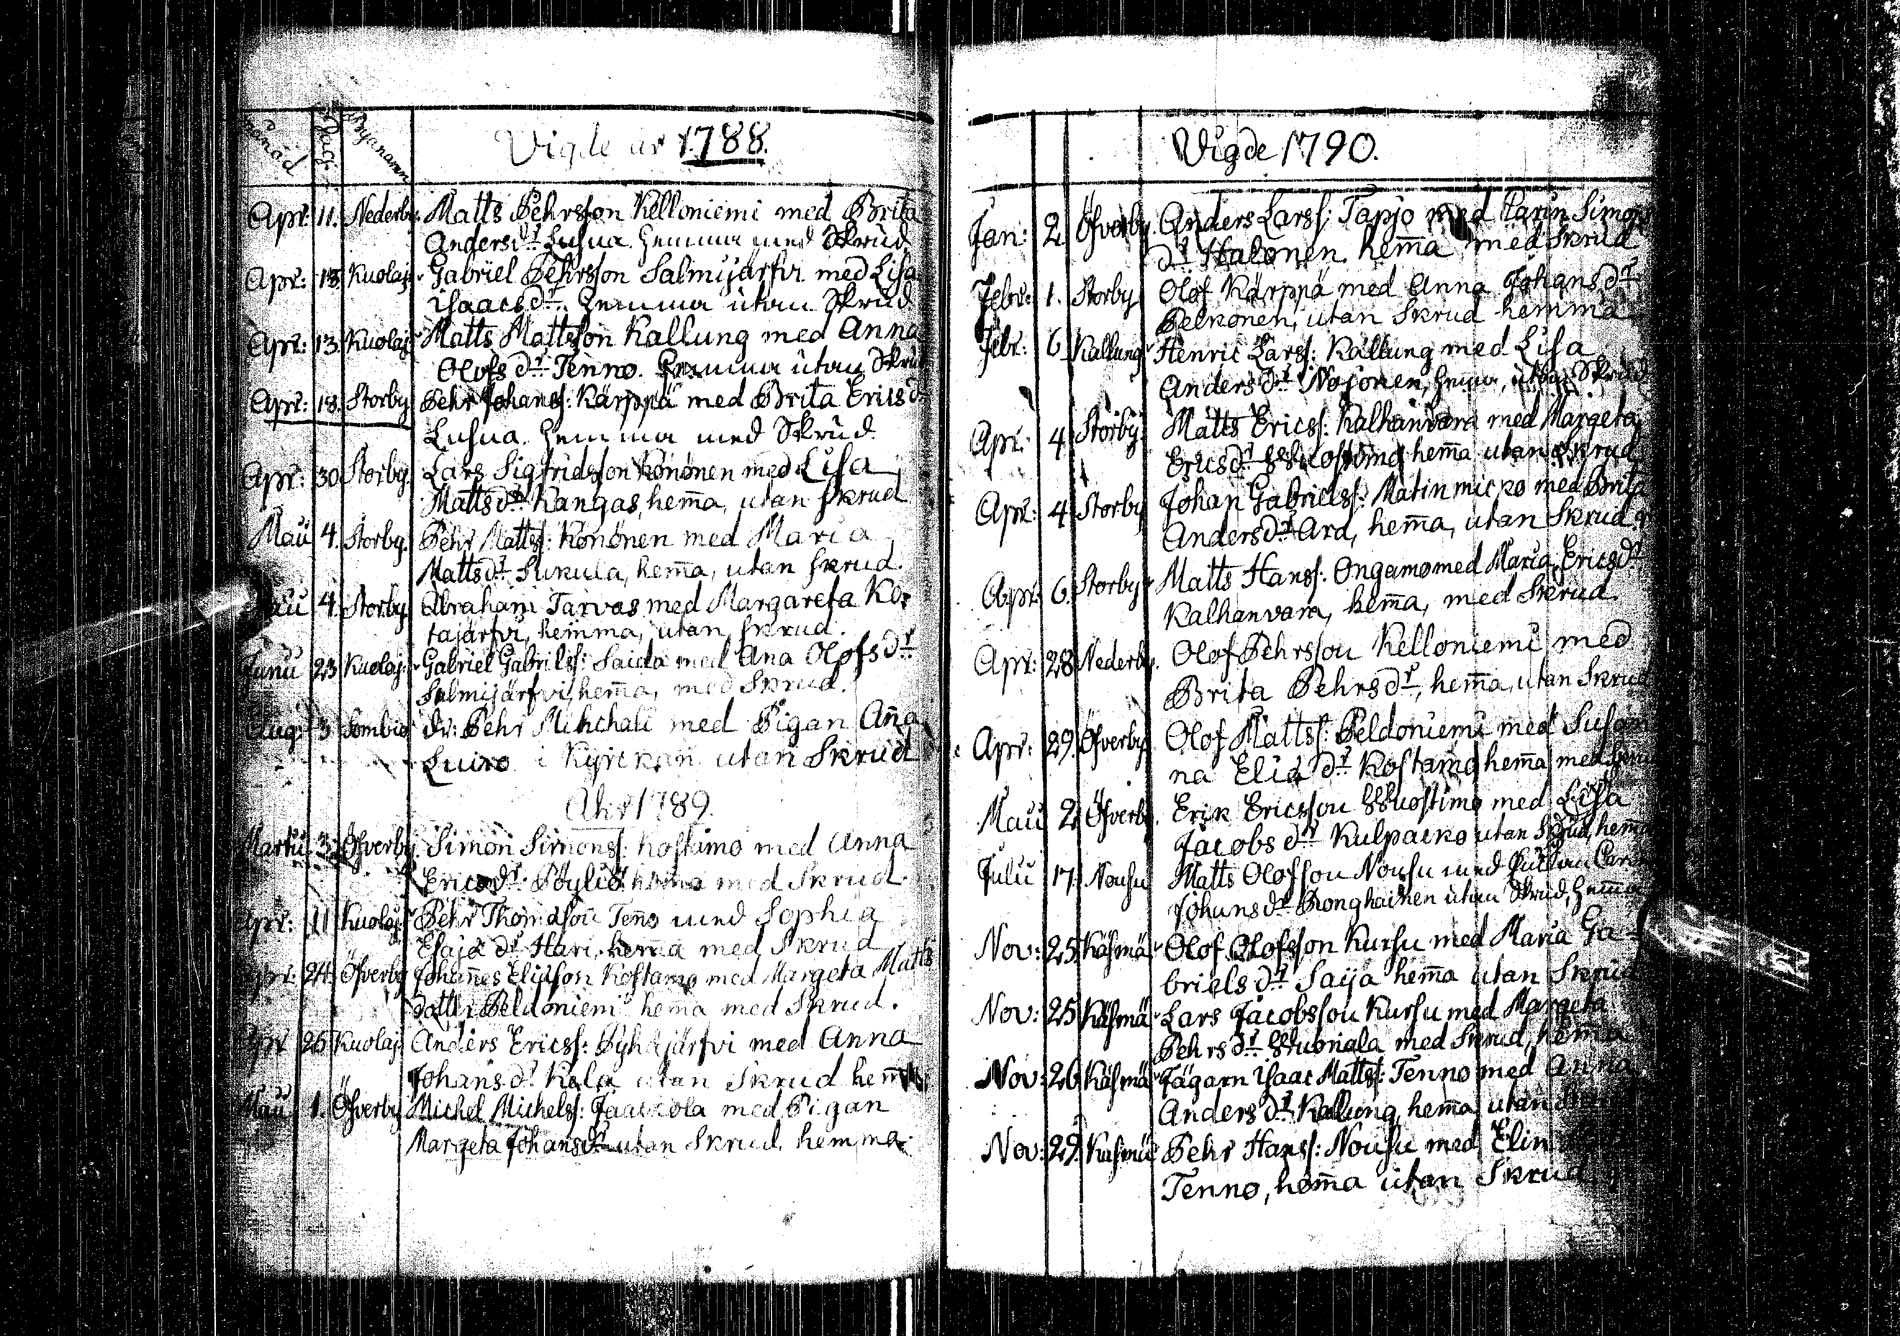 Månad
Dag
Byanamn
Vigde år 1788.
Apr: 11. Nederby. Matts Pehrsson Kelloniemi med Brita
Andersdr Lusua hemma med Skrud
Apr: 13. Kuolaj. Gabriel Pehrsson Salmijärfvi med Lisa
Isaacsdr. hemma utan Skrud
Apr: 13. Kuolaj. Matts Mattsson Kallung med Anna
Olofsdr Tenno. hemma utan Skrud
Apr: 13. Storby Pehr Johanss: Kärppä med Brita Ericsdr
Lusua. hemma med Skrud.
Apr: 30 Storby. Lars Sigfridsson Könönen med Lisa
Mattsdr Kangas, hema, utan skrud
Maii 4. Storby. Pehr Matss: Könönen med Maria
Mattsdr Sukula, hema, utan skrud.
Maii 4. Storby Abraham Tarvas med Margareta Ko-
tajärfvi, hemma, utan skrud.
Junii 23 Kuolaj. Gabriel Gabrielss: Saida med Ana Olofsdr
Salmijärfvi, hema, med Skrud.
Aug: 3 Sombio dr: Pehr med Pigan Aña
Luiro i Kyrckan utan Skrud
Ahr 1789.
Martii 3. Öfverby Simon Simonss: Kostamo med Anna
Ericsdr Pöyliö hema med Skrud
Apr: 11 Kuolaj. Pehr Thomasson Teño med Sophia
Esaiædr Hari hema med Skrud
Apr: 24. Öfverby Johannes Eliasson Kostamo med Margeta Matts
dotter Peldoniemi hema med Skrud.
Apr 26 Kuolaj. Anders Ericss: Pyhäjärfvi med Anna
Johansdr Kela utan Skrud hema
Maii 1. Öfverby Michel Michelss: Jaackola med Pigan
Margeta Johansdr utan Skrud hemma.
Vigde 1790.
Jan: 2. Öfverby Anders Larss: Tapjo med Karin Simons
dr Halonen hema med Skrud
Febr: 1. Storby Olof Kärppä med Anna Johansdr
Pelkonen, utan Skrud hemma
Febr: 6 Kallung Henric Larss: Kallung med Lisa
Andersdr Nojonen, hema, utan Skrud
Apr: 4 Storby. Matts Ericss: Kalhanvara med Margeta
Ericsdr hema utan skrud
Apr: 4 Storby Johan Gabrielss: Matinmicko med Brita
Andersdr Ard, hema, utan Skrud
Apr: 6. Storby Matts Hanss: Ongamo med Maria Ericsdr
Kalhanvara, hema, med Skrud.
Apr: 28 Nederby. Olof Pehrsson Kelloniemi med
Brita Pehrsdr, hema, utan Skrud
Apr: 29. Öfverby Olof Mattss: Peldoniemi med Susan
na Eliædr Kostamo hema med Skrud
Maii 2. Öfverby. Erik Ericsson med Lisa
Jacobsdr Kulpacko utan Skrud, hema
Julii 17. Nousu Matts Olofsson Nousu med Carin
Johansdr Ronghainen utan Skrud, hema
Nov: 25 Käsmä Olof Olofsson Kursu med Maria Ga-
brielsdr Saija hema utan Skrud
Nov: 25 Käsmä Lars Jacobsson Kursu med Margeta
Pehrsdr med Skrud, hema
Nov: 26 Käsmä Jägarn Isaac Mattss: Tenno med Anna
Andersdr Kallung, hema, utan Skrud
Nov: 29. Käsmä Pehr Hanss: Nousu med Elin
Tenno, hema utan Skrud.